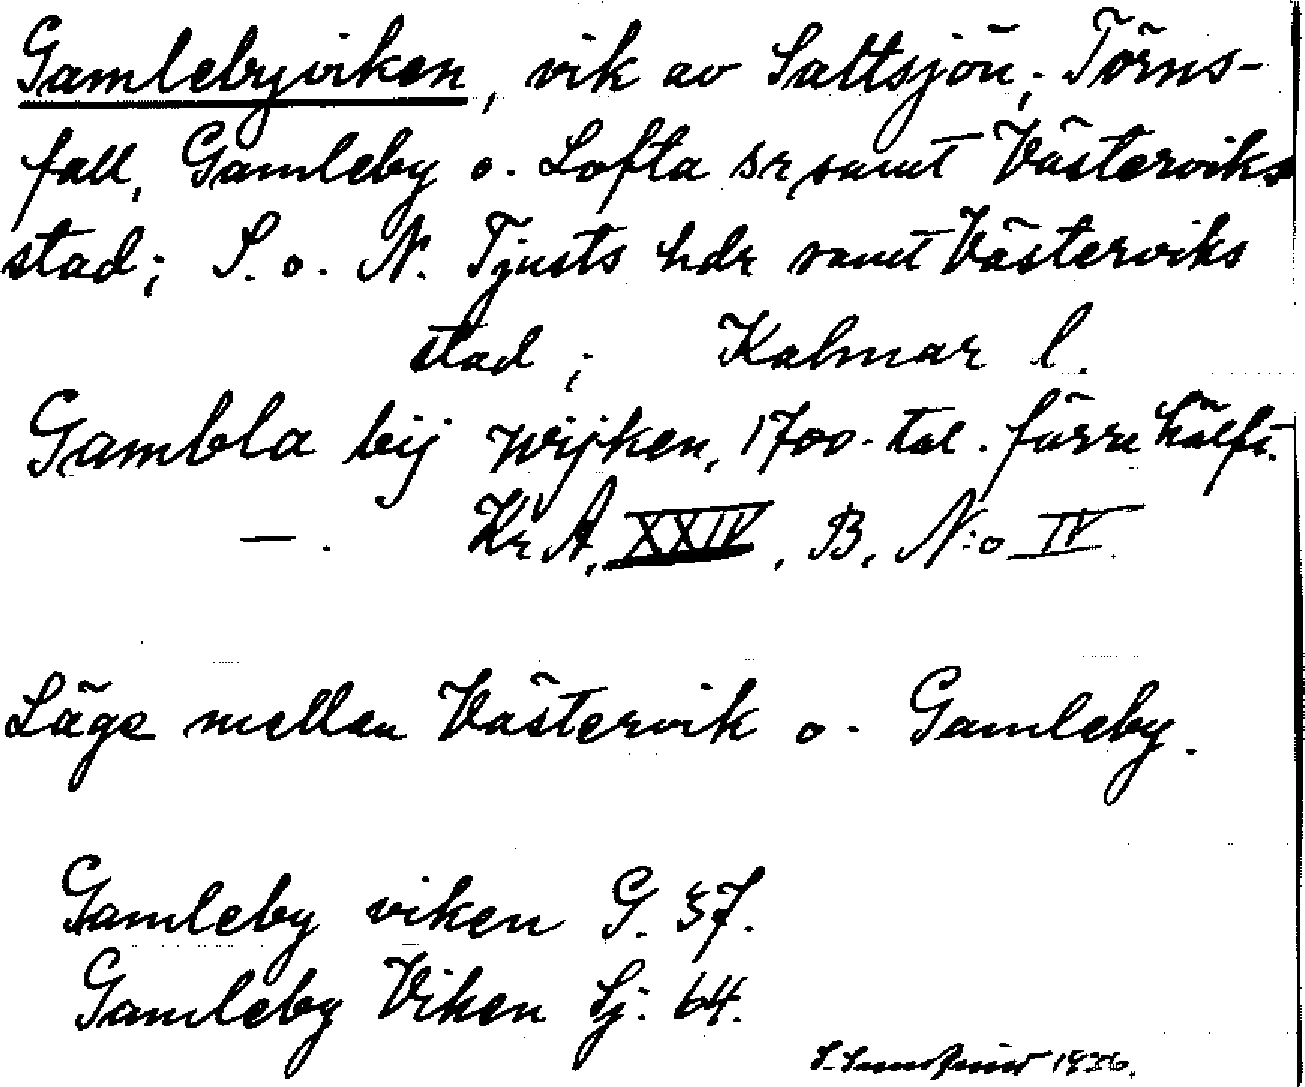 Gamlebyviken, vik av Saltsjön; Törns-
fall, Gamleby o. Lofta sr samt Västerviks
stad; S. o. N. Tjusts hdr samt Västerviks
stad; Kalmar l.
Gambla bij wijken, 1700-tal. förra hälft.
—. Kr.A. XXIV, B, N:o IV.
Läge mellan Västervik o. Gamleby.
Gamleby viken G. 57.
Gamleby Viken Sj. 64.
1926.